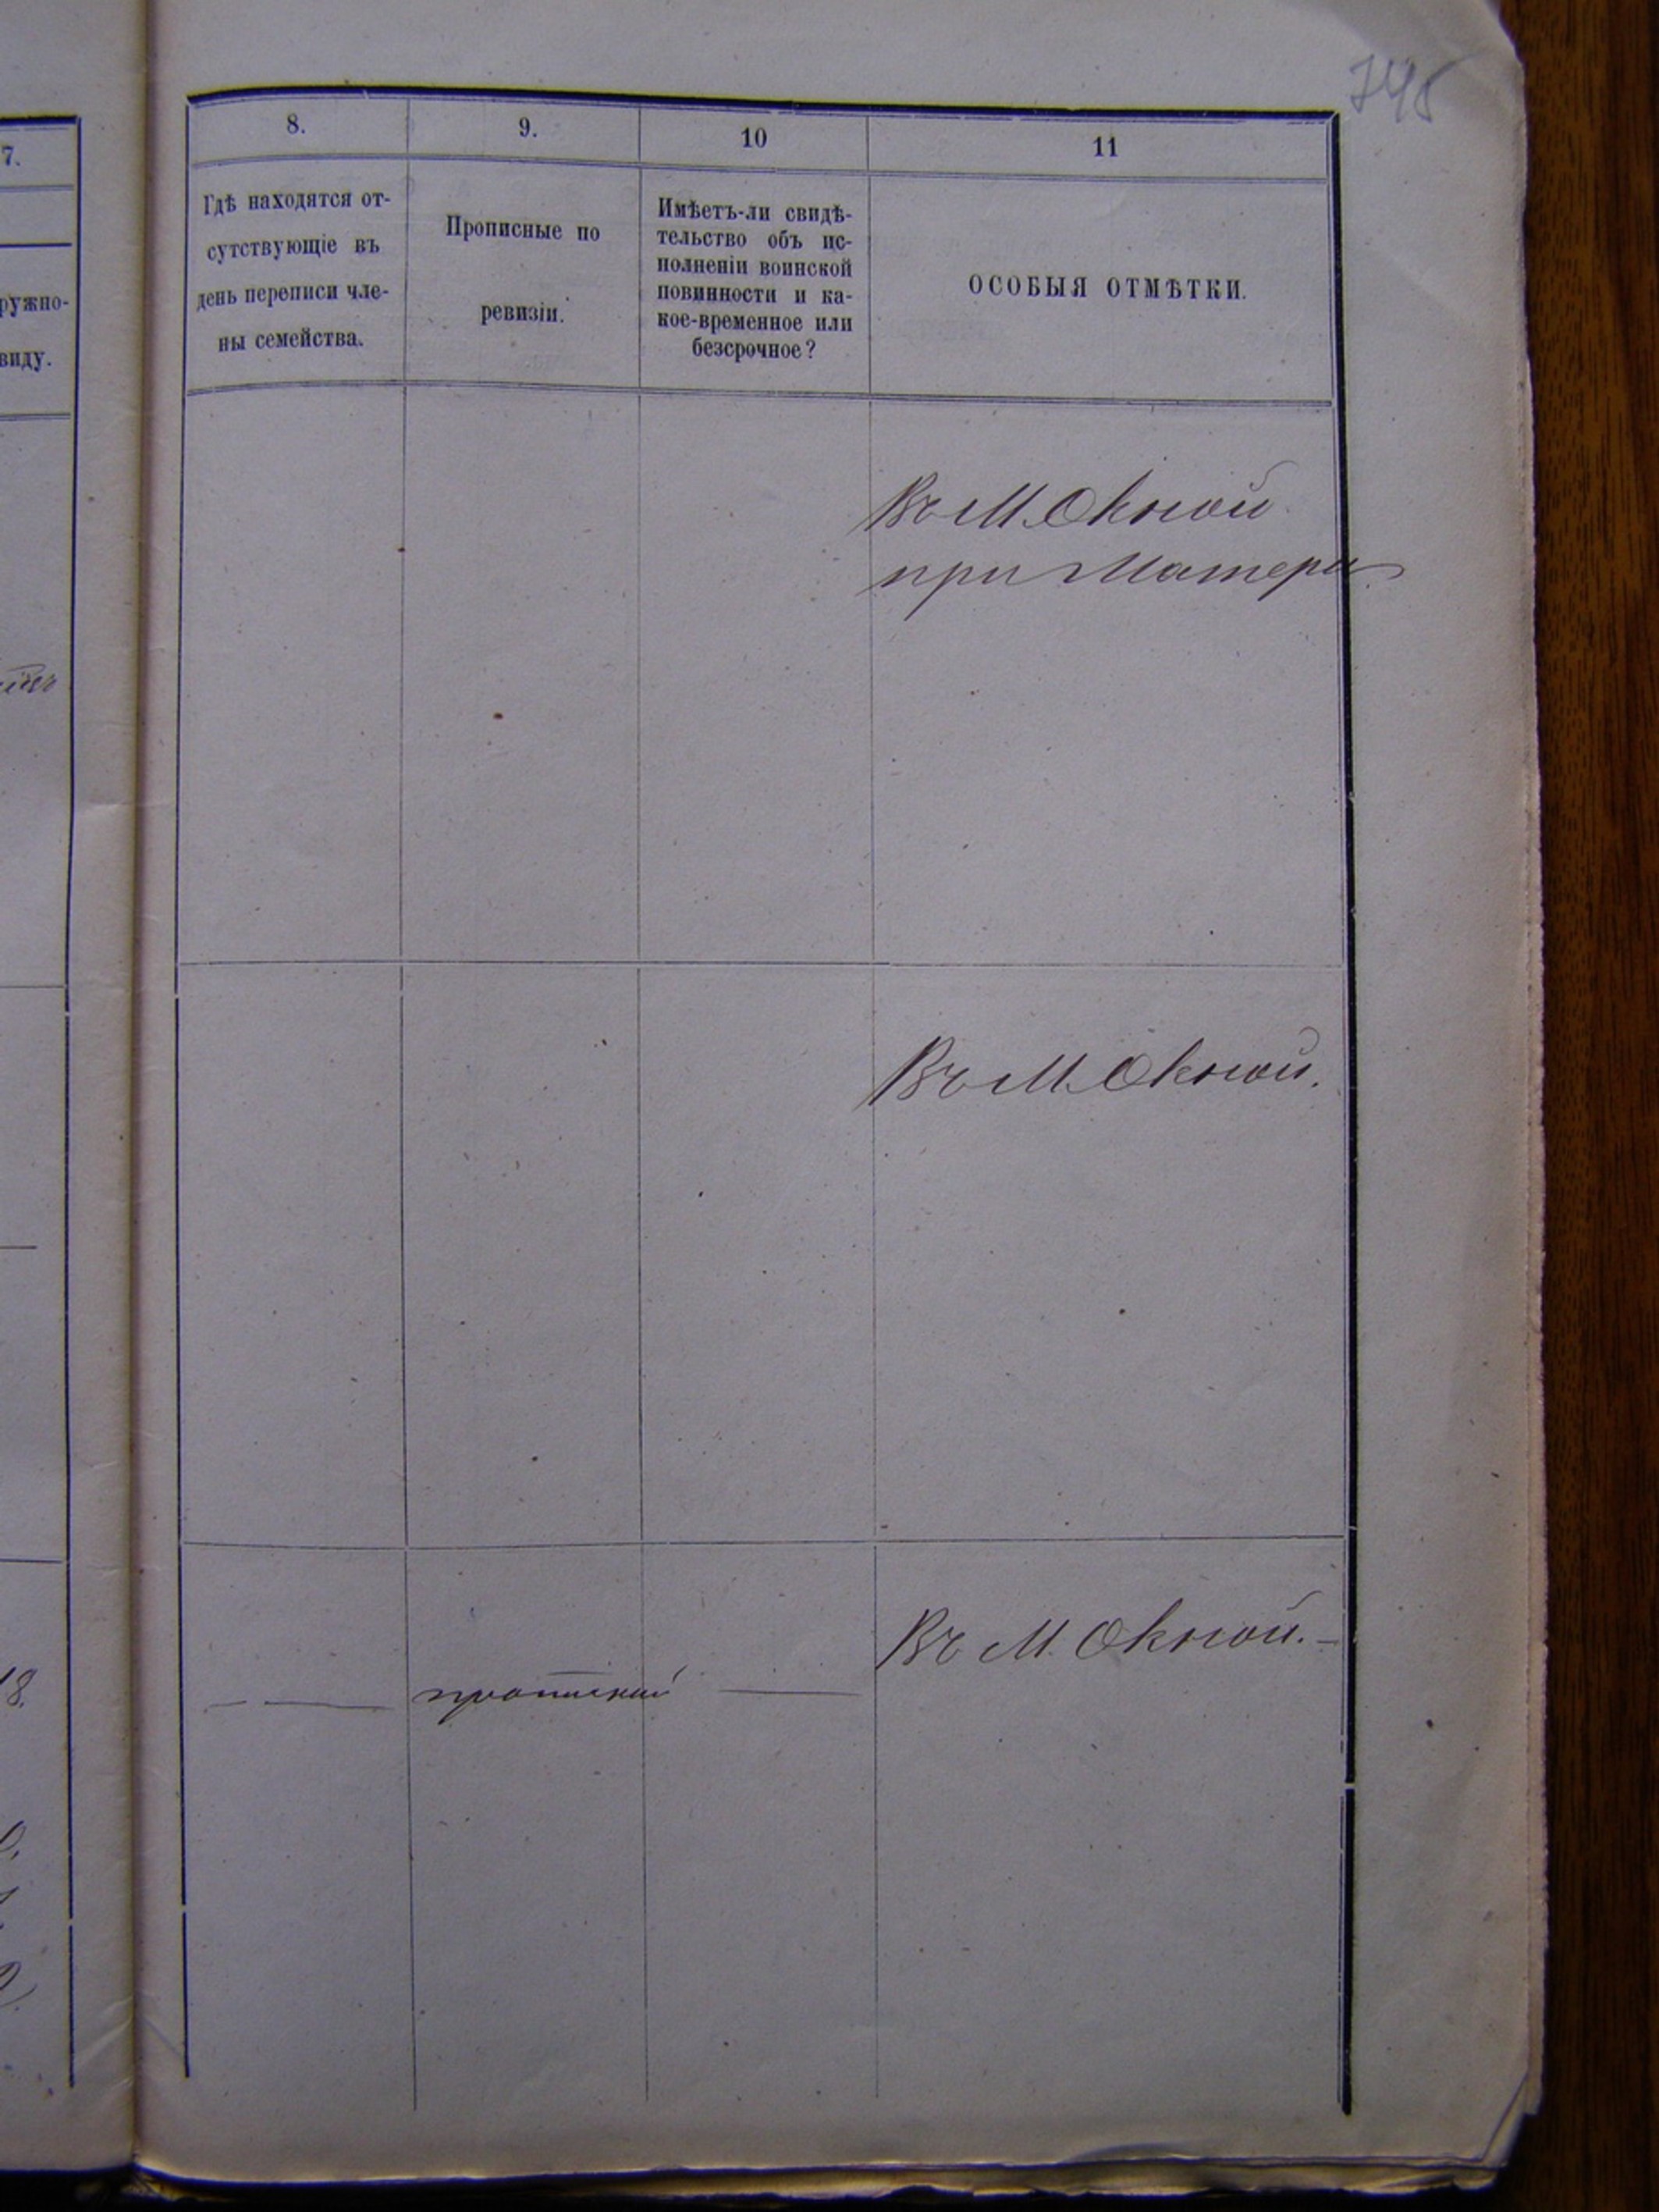 745
7.
8.
9.
10
11
ружно-
виду.
Гдѣ находятся от-
сутствующіе въ
день переписи чле-
ны семейства.
Прописные по
ревизіи.
Имѣетъ-ли свидѣ-
тельство объ ис-
полненіи воинской
повинности и ка-
кое-временное или
безсрочное?
ОСОБЫЯ ОТМѢТКИ.
Въ М. Окной
при Матери
Въ М. Окной.
18.
прописный
Въ М. Окной. –